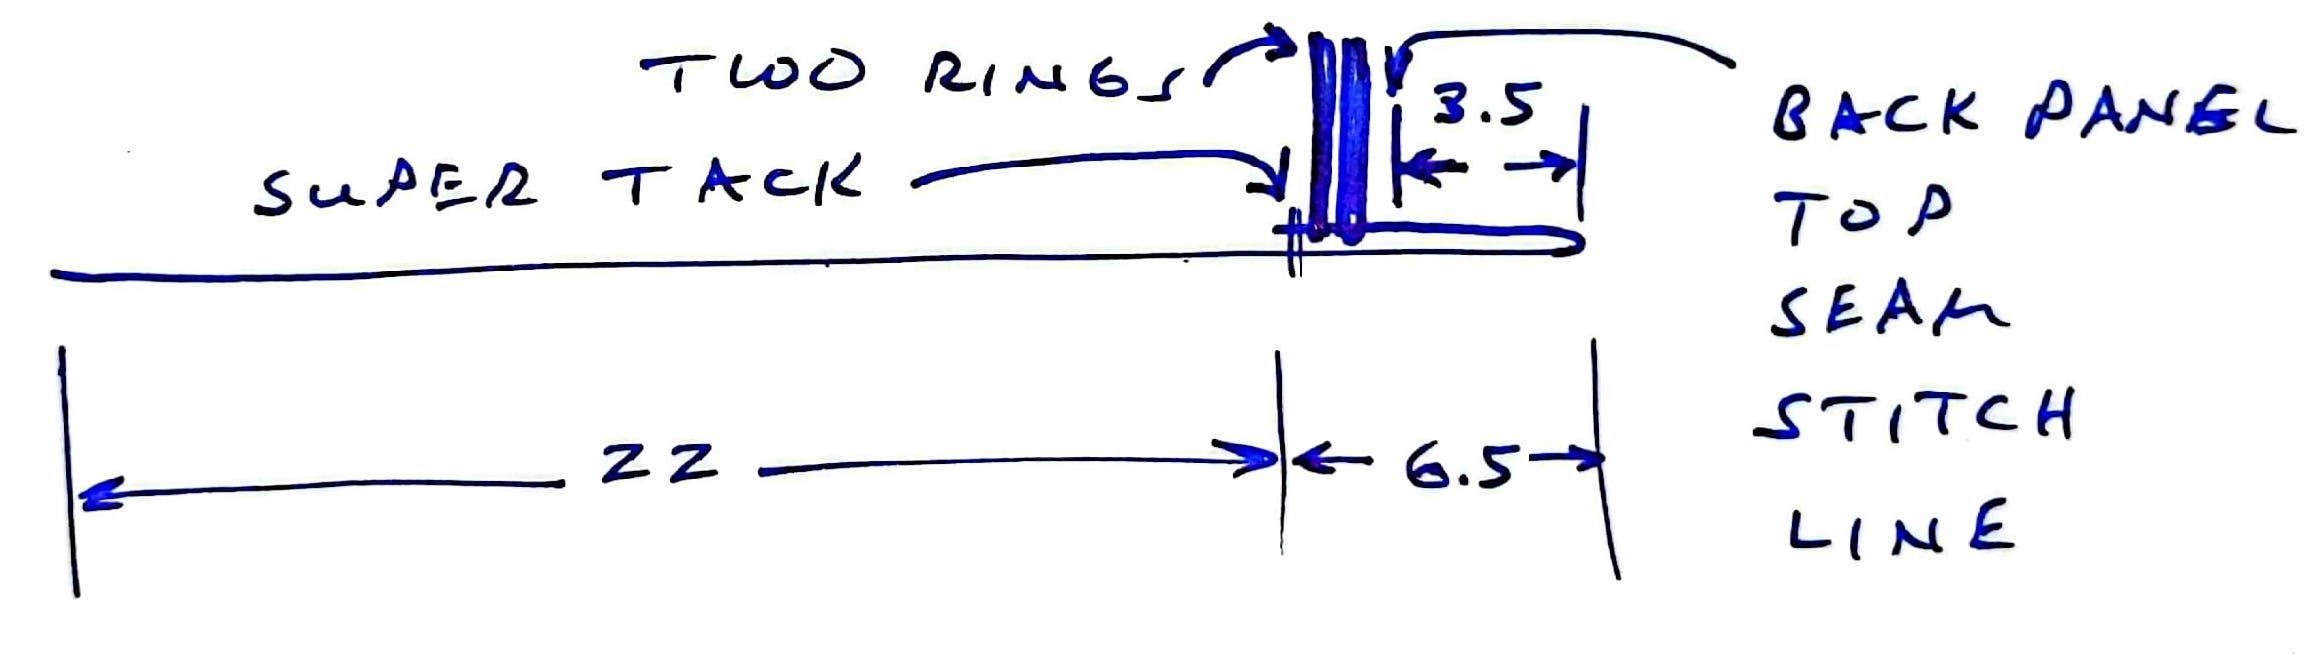 TWO RINGS
3.5
SUPER TACK
BACK PANEL
TOP
SEAM
STITCH
LINE
22
6.5